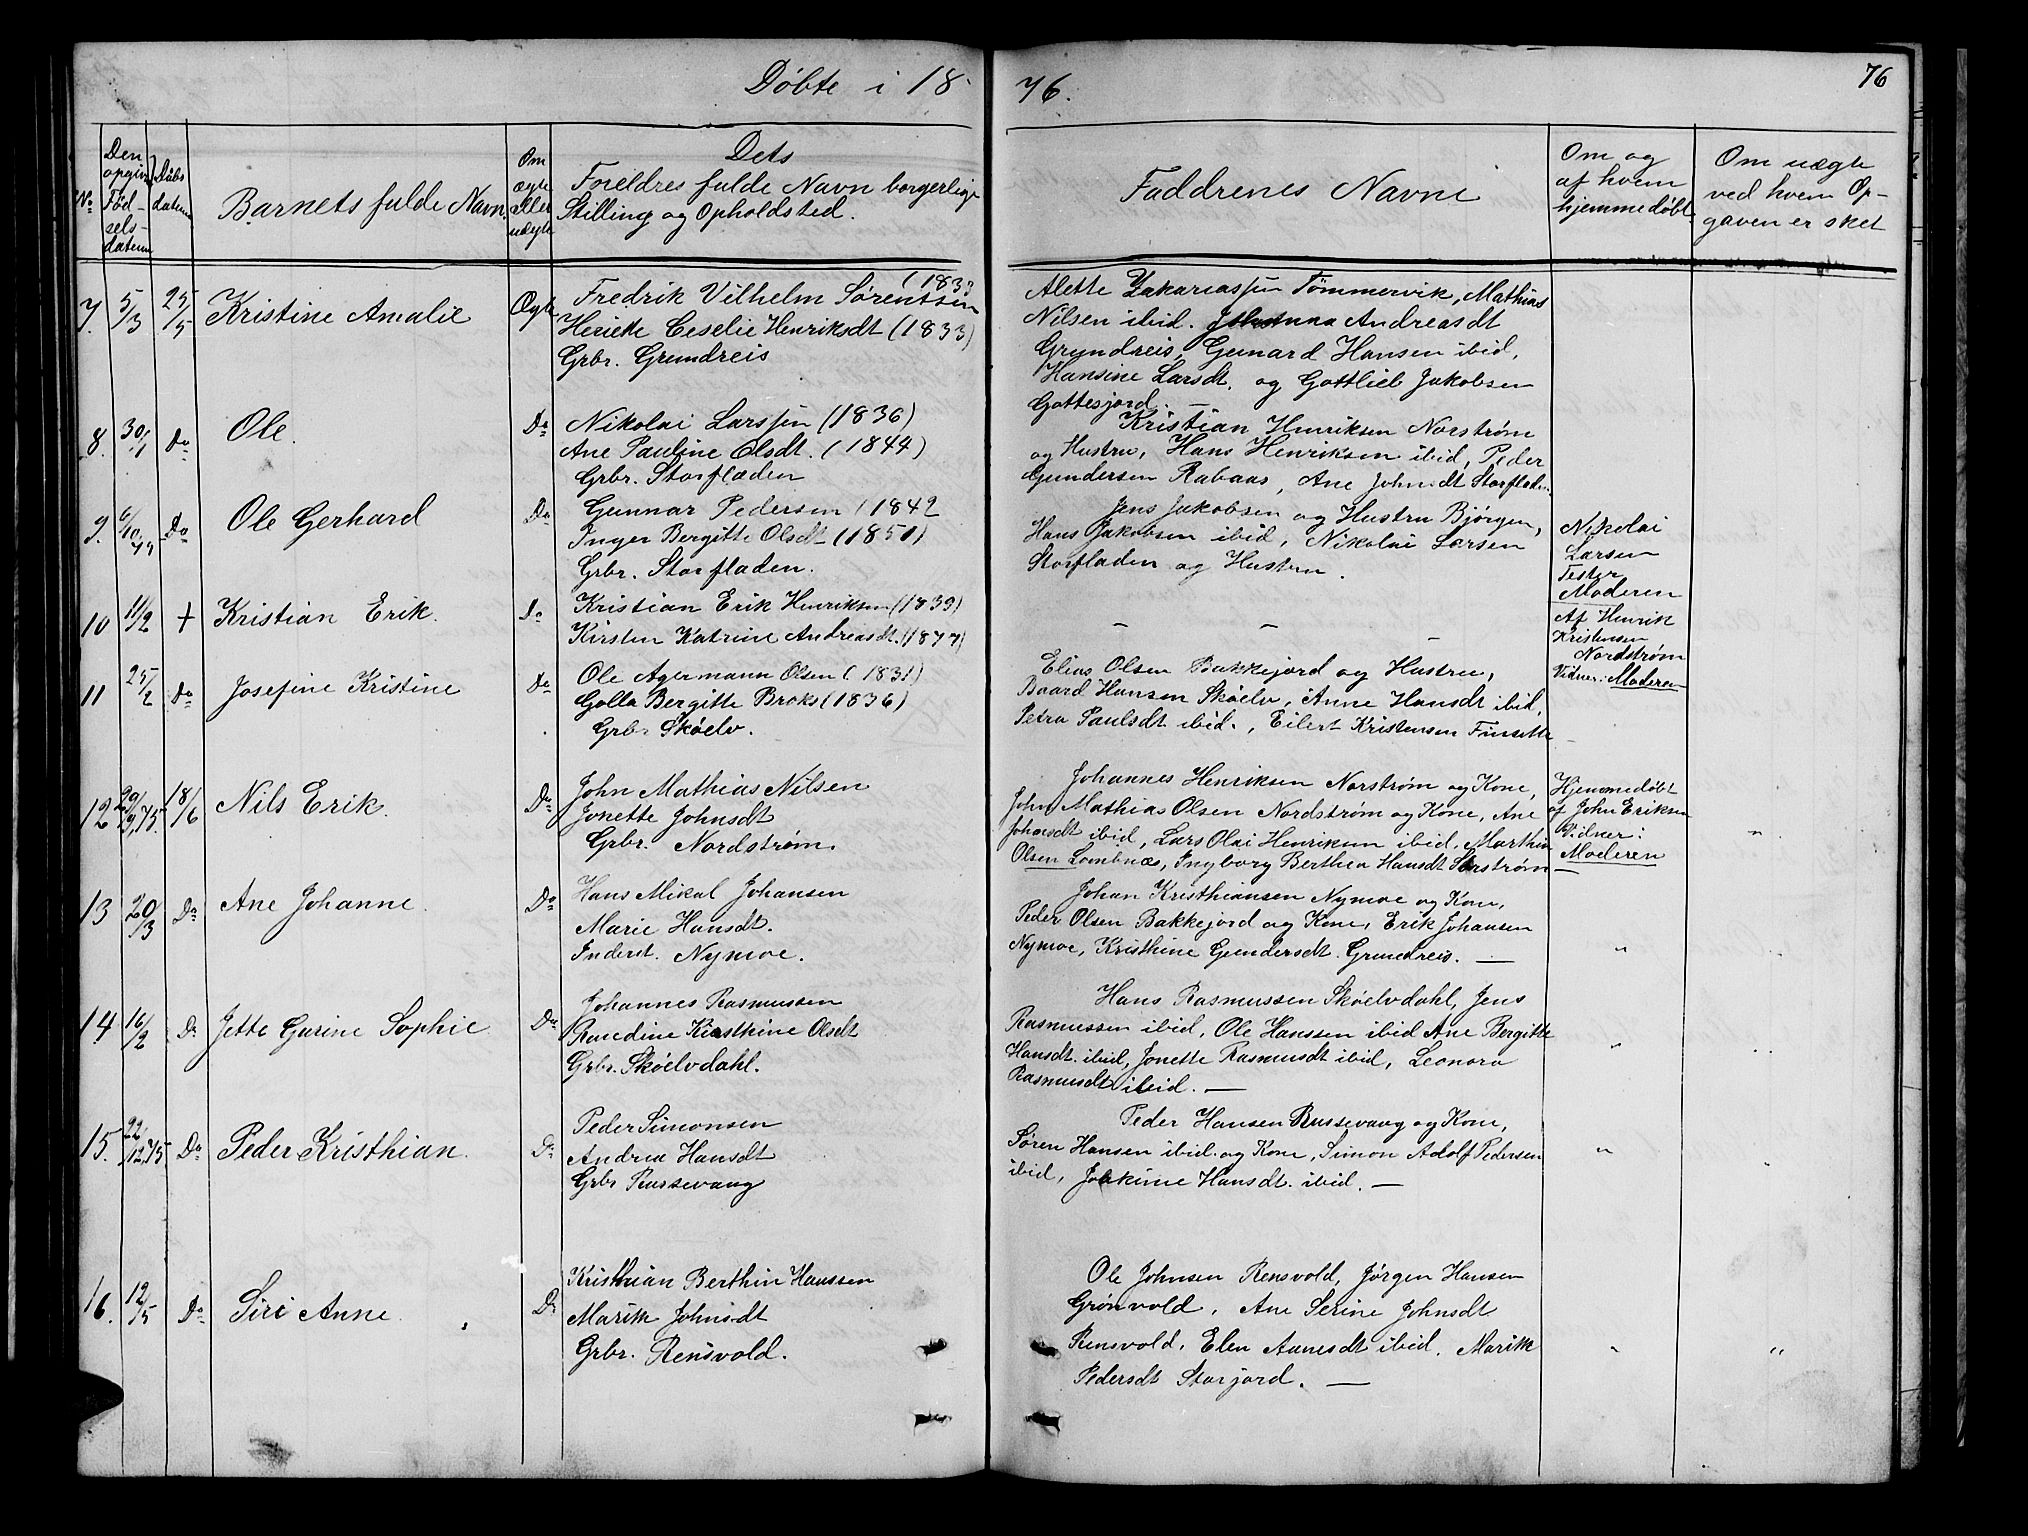 Døbte i 18
76.
76
No
Den opgivne Fødselsdatum
Døbsdatum
Barnets fulde Navn
Om ægte eller uægte
Dets
Foreldres fulde Navn borgerlige
Stilling og Opholdsted.
Faddrenes Navne
Om og af hvem hjemmedøbt
Om uægte ved hvem Opgaven er sket
7. 5/3 25/5 Kristine Amalie Ægte Fredrik Vilhelm Sørentssen (1833
Cecelie Henriksdt (1833)
Grbr. Grundreis
Alette Zakariassen Tømmervik, Mathias
Nilsen ibid. Johanna Andreasdt
Gryndreis, Gunard Hansen ibid,
Hansine Larsdt, og Gottlieb Jakobsen
Gottesjord. —
8. 30/1 Do Ole. Do Nikolai Larssen (1836)
Ane Pauline Olsdt. (1844)
Grbr. Storfladen
Kristian Henriksen Norstrøm
og Hustru, Hans Henriksen ibid, Peder
Gundersen Rabaas, Ane Johnsdt Storfladen
9. 6/10 75 Do Ole Gerhard Do Gunnar Pedersen (1842
Inger Bergitte Olsdt (1851)
Grbr. Storfladen.
Jens Jakobsen og Hustru Bjørgen,
Hans Jakobsen ibid, Nikolai Larsen
Storfladen og Hustru.
Nikolai
Larsen
Tester
Moderen
10 11/2 + Kristian Erik. Do Kristian Erik Henriksen (1839)
Kirsten Katrine Andreasdt.
– – –
Af Henrik
Kristensen
Nordstrøm
Vidner: Moderen
11 25/2 Do Josefine Kristine Do Ole Agermann Olsen (1831)
Golla Bergitte Broks (1836)
Grbr Skøelv.
Elias Olsen Bakkejord og Hustru,
Baard Hansen Skøelv, Anne Hansdt ibid,
Petra Paulsdt ibid., Eilert Kristensen Finsetter
12 29/9 75. 18/6 Nils Erik. Do John Mathias Nilsen
Jonette Johnsdt
Grbr. Nordstrøm.
Johannes Henriksen Norstrøm og Kone,
John Mathias Olsen Nordstrøm og Kone, Ane
Johansdt ibid, Lars Olai Henriksen ibid, Marthin
Olsen Lombnæs, Ingborg Berthea Hansdt
Hjemmedøbt
af John Eriksen
Vidner:
Moderen
"
13 20/3 Do Ane Johanne. Do Hans Mikal Johansen
Marie Hansdt.
Inderst. Nymoe.
Johan Kristhiansen Nymoe og Kone,
Peder Olsen Bakkejord og Kone, Erik Johansen
Nymoe, Kristhine Gundersdt. Grundreis. —
"
14 16/2 Do Jette Garine Sophie Do Johannes Rasmussen
Kristhine Olsdt
Grbr. Skøelvdahl.
Hans Rasmussen Skøelvdahl, Jens
Rasmussen ibid, Ole Hanssen ibid Ane Bergitte
Hansdt. ibid, Jonette Rasmusdt ibid, Leonora
Rasmusdt ibid. —
" "
15. 22/12 75 Do Peder Kristhian. Do Peder Simonsen
Andrea Hansdt
Grbr Russevang
Peder Hansen Russevang og Kone,
Søren Hansen ibid. og Kone, Simon Adolf Pedersen
ibid, Joakime Hansdt. ibid. —
" "
16. 12/5 Do Siri Anne. Do Kristhian Berthin Hanssen
Marith Johnsdt
Grbr. Rensvold.
Ole Johnsen Rensvold, Jørgen Hansen
Grønvold, Ane Serine Johnsdt
Rensvold, Elen Aunesdt ibid, Marith
Pedersdt Storjord. —
" "